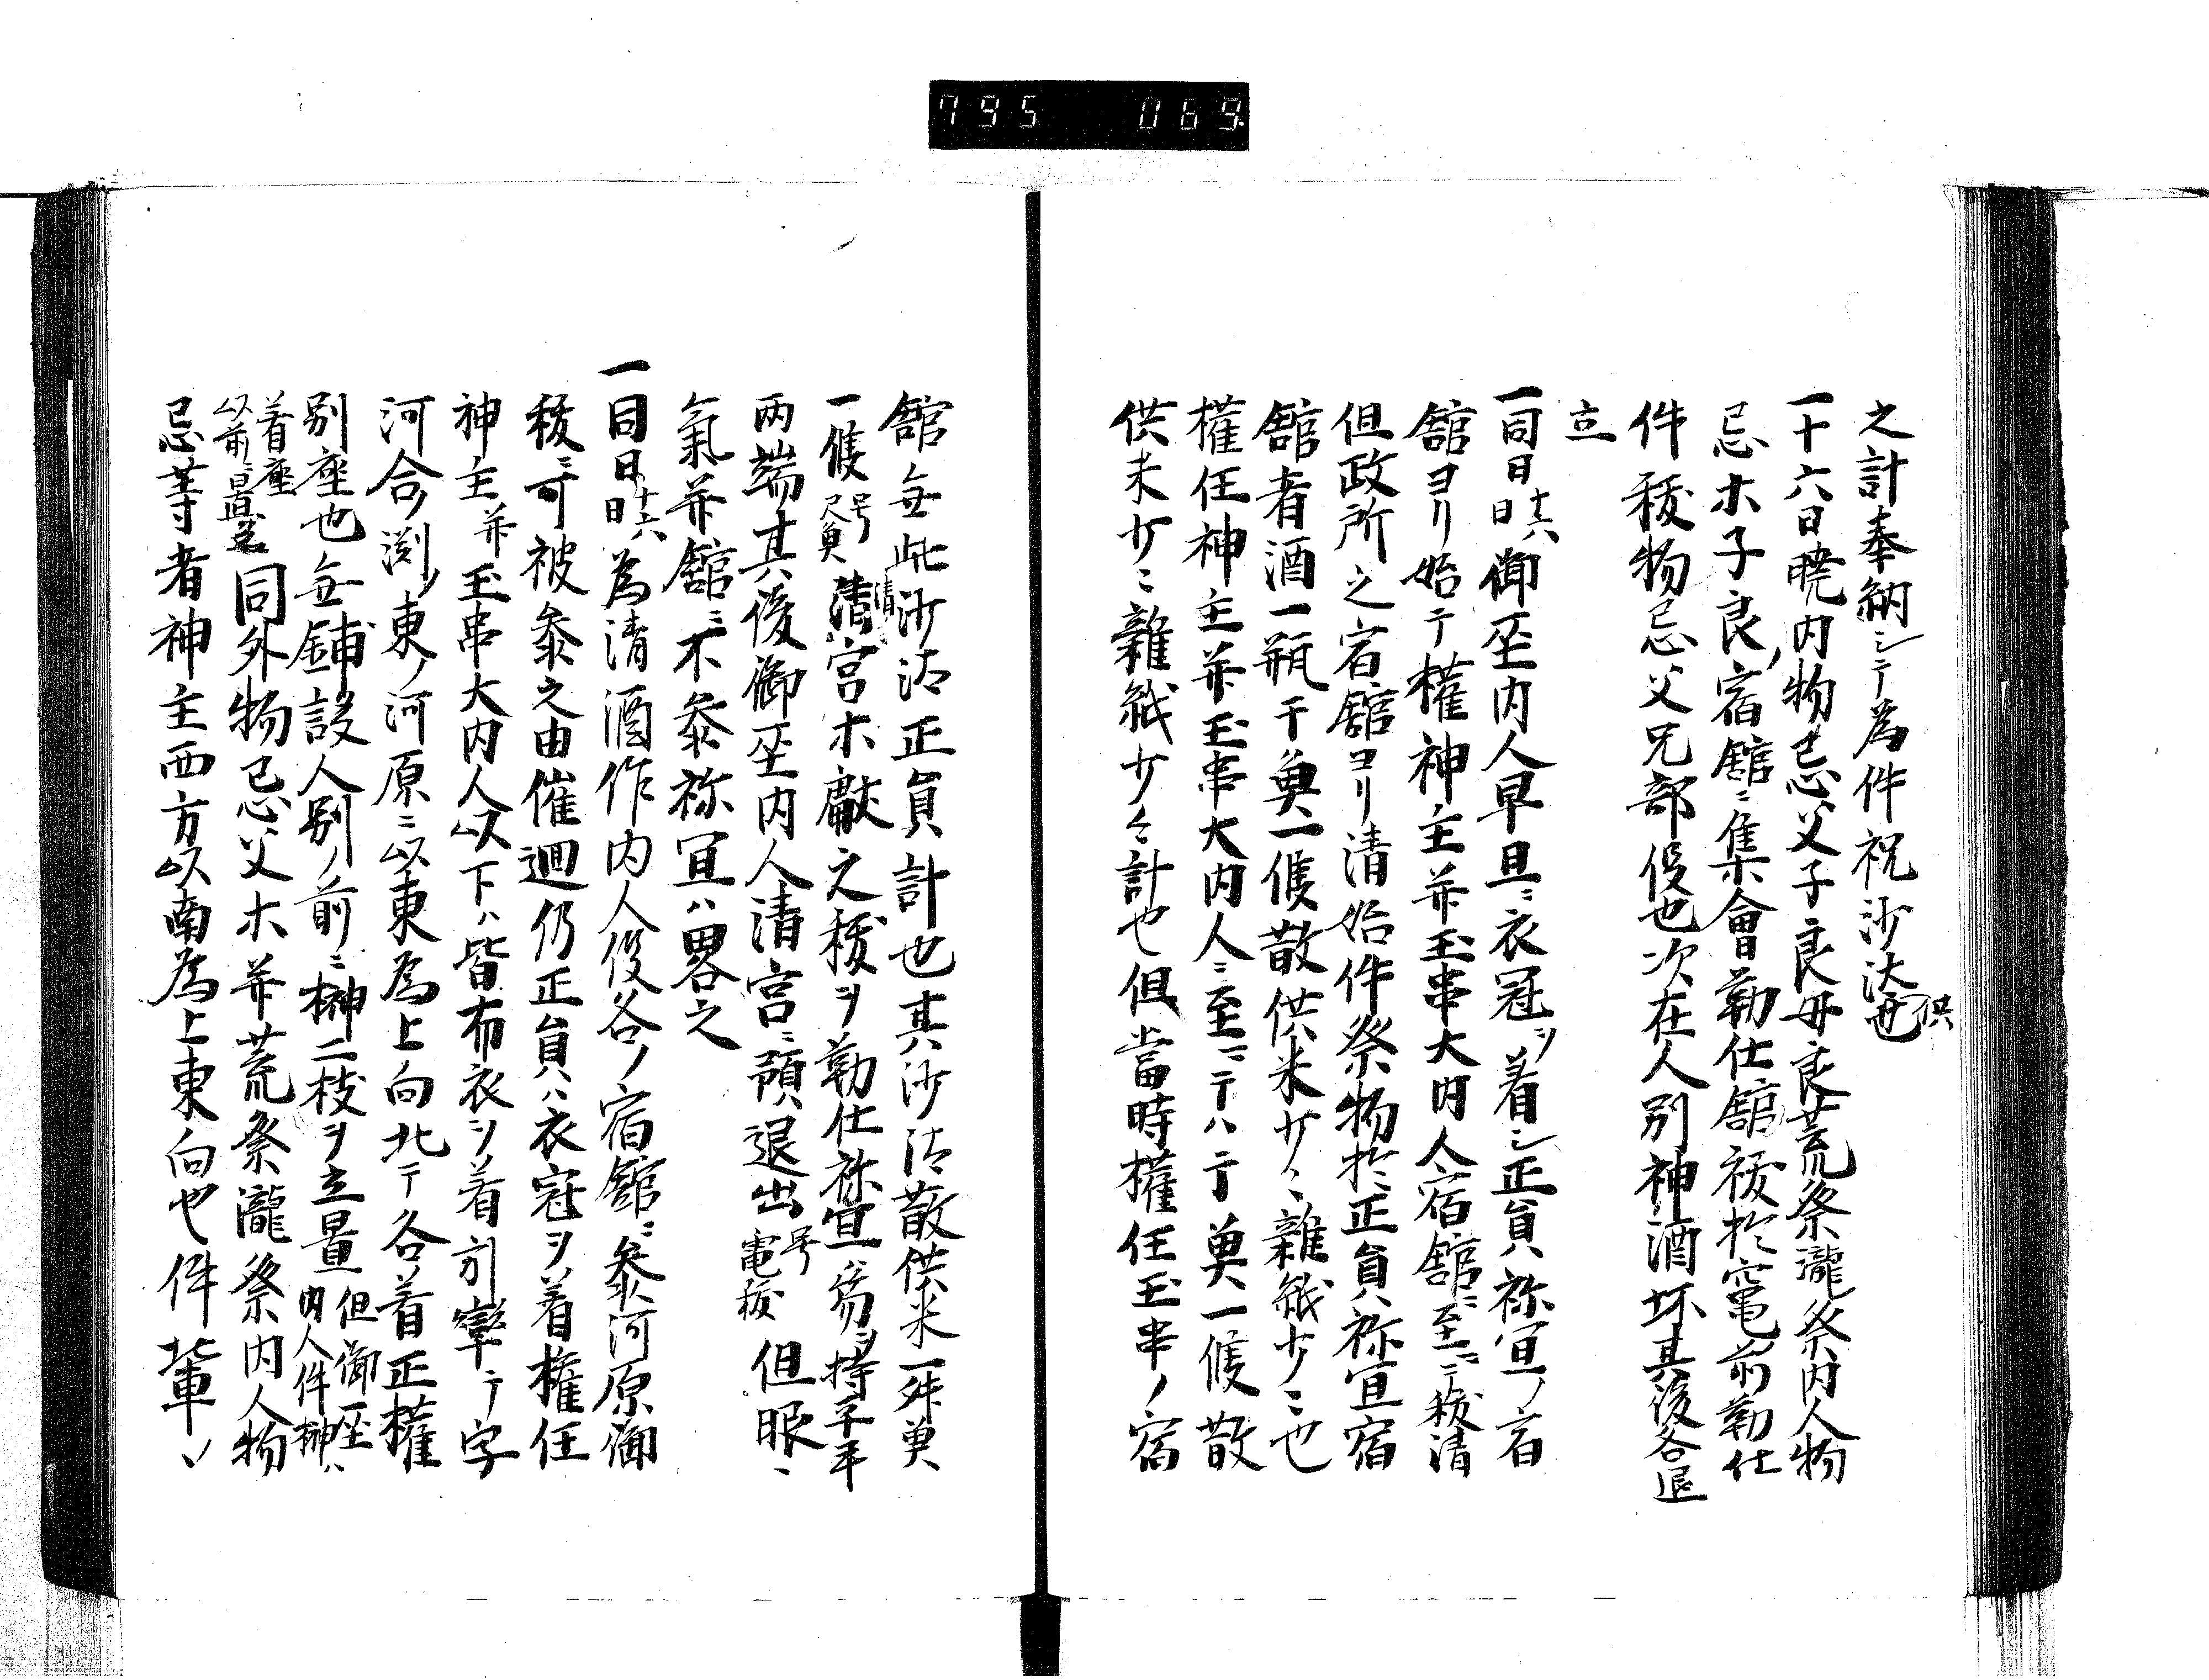 795 069
之計奉納シテ為件祝沙汰也供
一十六日暁内物忌父子良母良荒祭瀧祭内人物
忌ホ子良ノ宿舘ニ集會勤仕舘祓於竃前勤仕
件秡物忌父兄部役也次在人別神酒坏其後各退
立
一同日十六日御巫内人早旦ニ衣冠ヲ着シ正員祢宜ノ宿
舘ヨリ始テ權神主并玉串大内人宿舘ニ至ニテ秡清
但政所之宿舘ヨリ清始件祭物於正員祢宜宿
舘者酒一瓶干奠一隻散供米少々雑紙少々也
權任神主并玉串大内人ニ至ニテハ干奠一隻散
供米少々雑紙少々計也但當時權任玉串ノ宿
舘無此沙汰正員計也其沙汰散供米一舛奠
一隻号尺奠清宮ホ獻之秡ヲ勤仕祢宜ハ笏ヲ持平手
両端其後御巫内人清宮ニ預退出号竃秡但眼ニ
氣并舘ニ不參祢宜ハ畧之
一同日十六日為清酒作内人役各ノ宿舘ニ參河原御
秡ニ可被參之由催廻仍正員ハ衣冠ヲ着權任
神主并玉串大内人以下ハ皆布衣ヲ着列攣テ字
河合ノ渕ノ東ノ河原ニ以東為上向北テ各着正權
別座也無鋪設人別ノ前ニ榊二枝ヲ立置但御巫内人件榊ハ
着座以前ニ置之同外物忌父ホ并荒祭瀧祭内人物
忌等者神主西方以南為上東向也件輩ハ